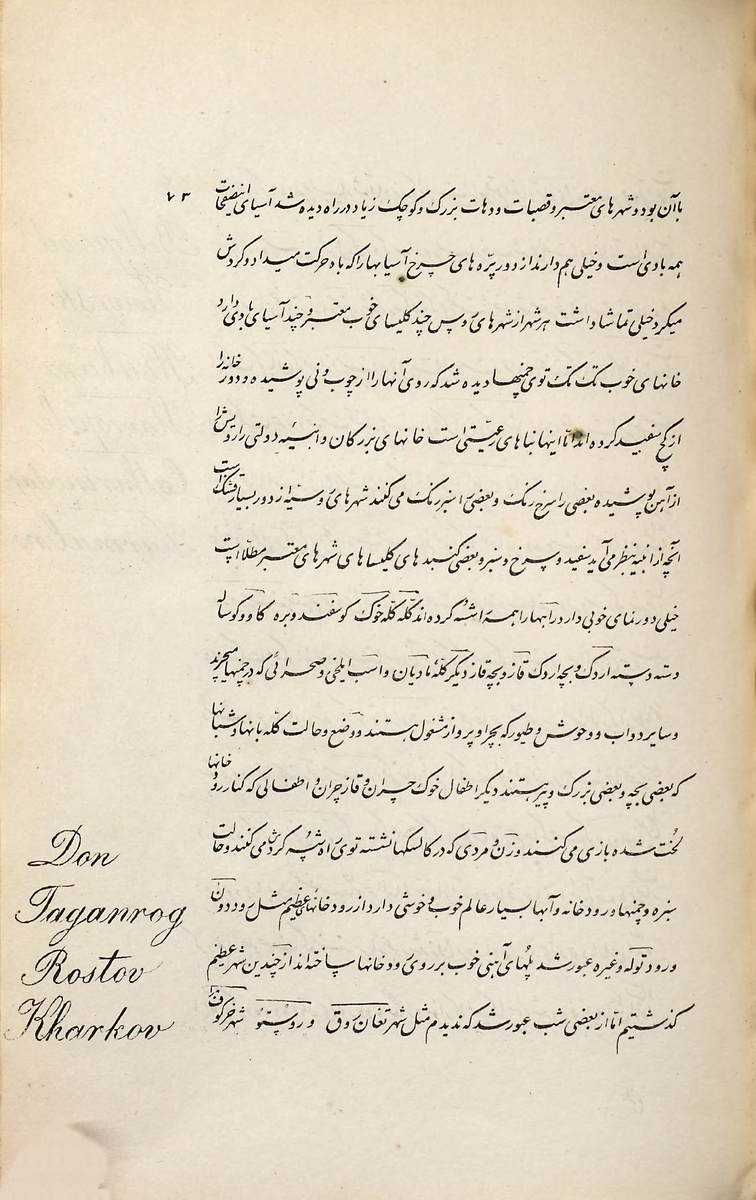 ۷۳
با آن بود و شهرهای معتبر و قصبات و دهات بزرک و کوچک زیاد در راه دیده شد آسیای اینصفحات
همه بادی است و خیلی هم دارند از دور پرّه های چرخ آسیابها را که باد حرکت میداد و کردش
میکرد خیلی تماشا داشت هر شهر از شهرهای روس چند کلیسای خوب معتبر و چند آسیای بادی دارد
خانهای خوب تک تک توی چمنها دیده شد که روی آنها را از چوب و نی پوشیده و دور خانه را
از کچ سفید کرده اند امّا اینها بناهای رعیّتی است خانهای بزرکان و ابنیهٔ دولتی را رویش را
از آهن پوشیده بعضی را سرخ رنک و بعضی را سبز رنک می کنند شهرهای روسیّه از دور بسیار قشنک است
آنچه از ابنیه بنظر می آید سفید و سرخ و سبز و بعضی کنبد های کلیساهای شهرهای معتبر مطلّا است
خیلی دورنمای خوبی دارد راهها را همه را شُسه کرده اند کلّه کلّه خوک کوسفند و بره کاو و کوساله
دسته دسته اردک و بچه اردک قاز و بچه قاز دیکر کلّهٔ مادیان و اسب ایلخی و صحرائی که در چمنها میچرند
و سایر دواب و وحوش و طیور که بچرا و پرواز مشغول هستند و وضع و حالت کلّه بانها و شبانها
که بعضی بچه و بعضی بزرک و پیر هستند دیکر اطفال خوک چران و قاز چران و اطفالی که کنار رودخانها
لُخت شده بازی می کنند و زن و مردی که در کالسکها نشسته توی راه شُسه کردش می کنند و حالت
سبزه و چمنها و رودخانه و آبها بسیار عالم خوب و خوشی دارد از رودخانهای عظیم مثل رود دون
و رود تو‌له و غیره عبور شد پلهای آهنی خوب بر روی رودخانها ساخته اند از چندین شهر عظیم
کذشتیم امّا از بعضی شب عبور شد که ندیدم مثل شهر تغان روق و روستو شهر خرکوف را
Don
Taganrog
Rostov
Kharkov